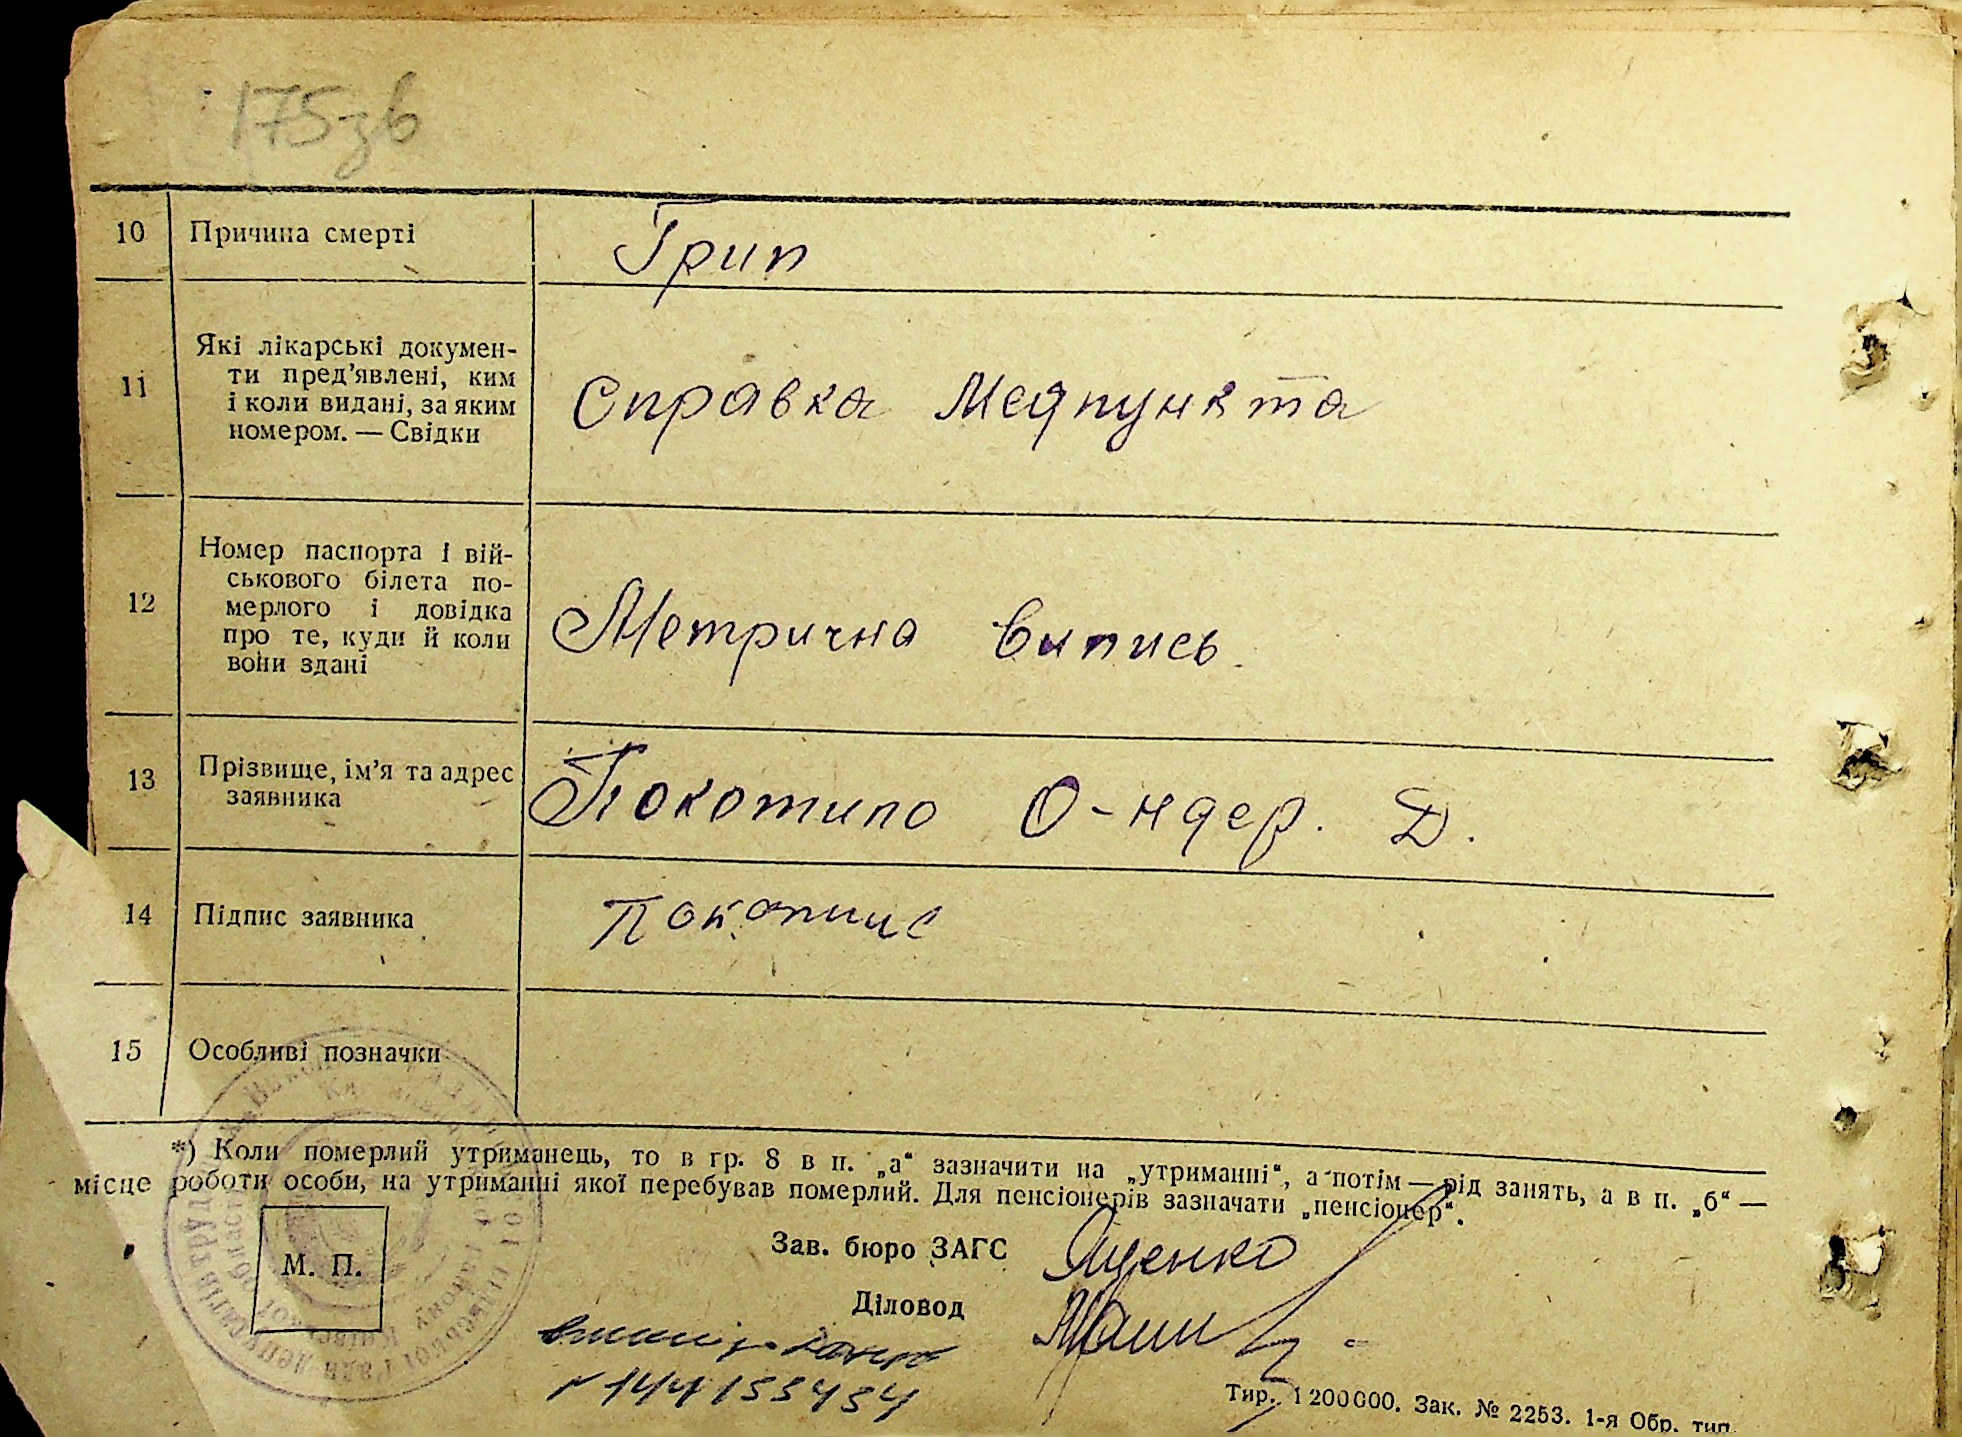 175зв
10 Причина смерті Грип
11 Які лікарські докумен-
ти пред'явлені, ким
і коли видані, за яким
номером. — Свідки
Справка Медпункта
12 Номер паспорта і вій-
ськового білета по-
мерлого і довідка
про те, куди й коли
вони здані
Метрична випись.
13 Прізвище, ім'я та адрес
заявника
Покотило О-ндер. Д.
14 Підпис заявника
15 Особливі позначки
*) Коли померлий утриманець, то в гр. 8 в п. „а“ зазначити на „утриманні“, а потім — рід занять, а в п. „б“ —
місце роботи особи, на утриманні якої перебував померлий. Для пенсіонерів зазначати „пенсіонер“.
М. П.
Зав. бюро ЗАГС Яценко
Діловод
Тир. 1200000. Зак. № 2253. 1-я Обр. тип.